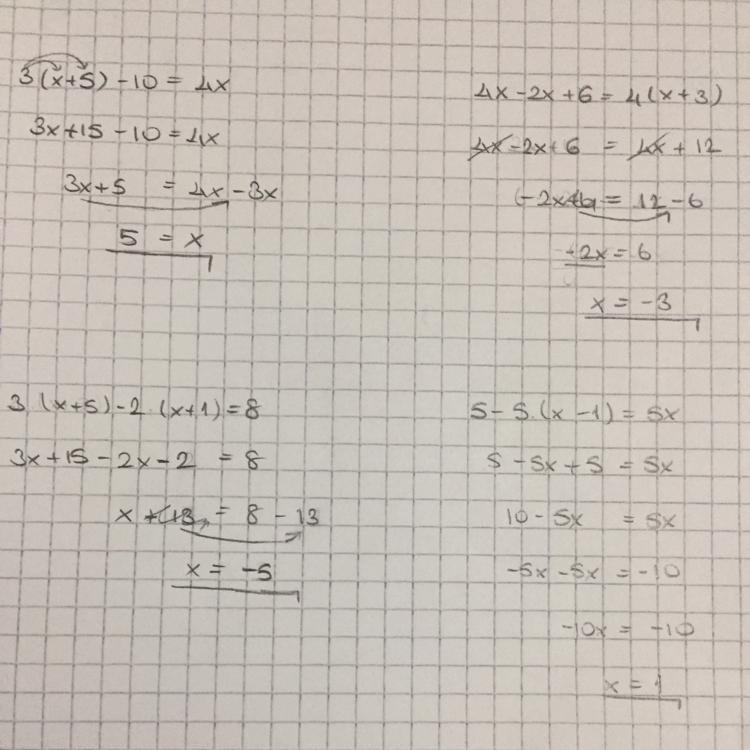 3(x+5)-10 = 4x
3x+15-10=4x
3x+5 = 4x-3x
5 = x
4x-2x+6=4(x+3)
4x-2x+6 = 4x+12
-2x+6 = 12-6
-2x=6
x = -3
3.(x+5)-2.(x+1)=8
3x+15-2x-2 =8
x+13 = 8-13
x= -5
5-5.(x-1)=5x
5-5x+5 =5x
10-5x =5x
-5x-5x =-10
-10x = -10
x = 1